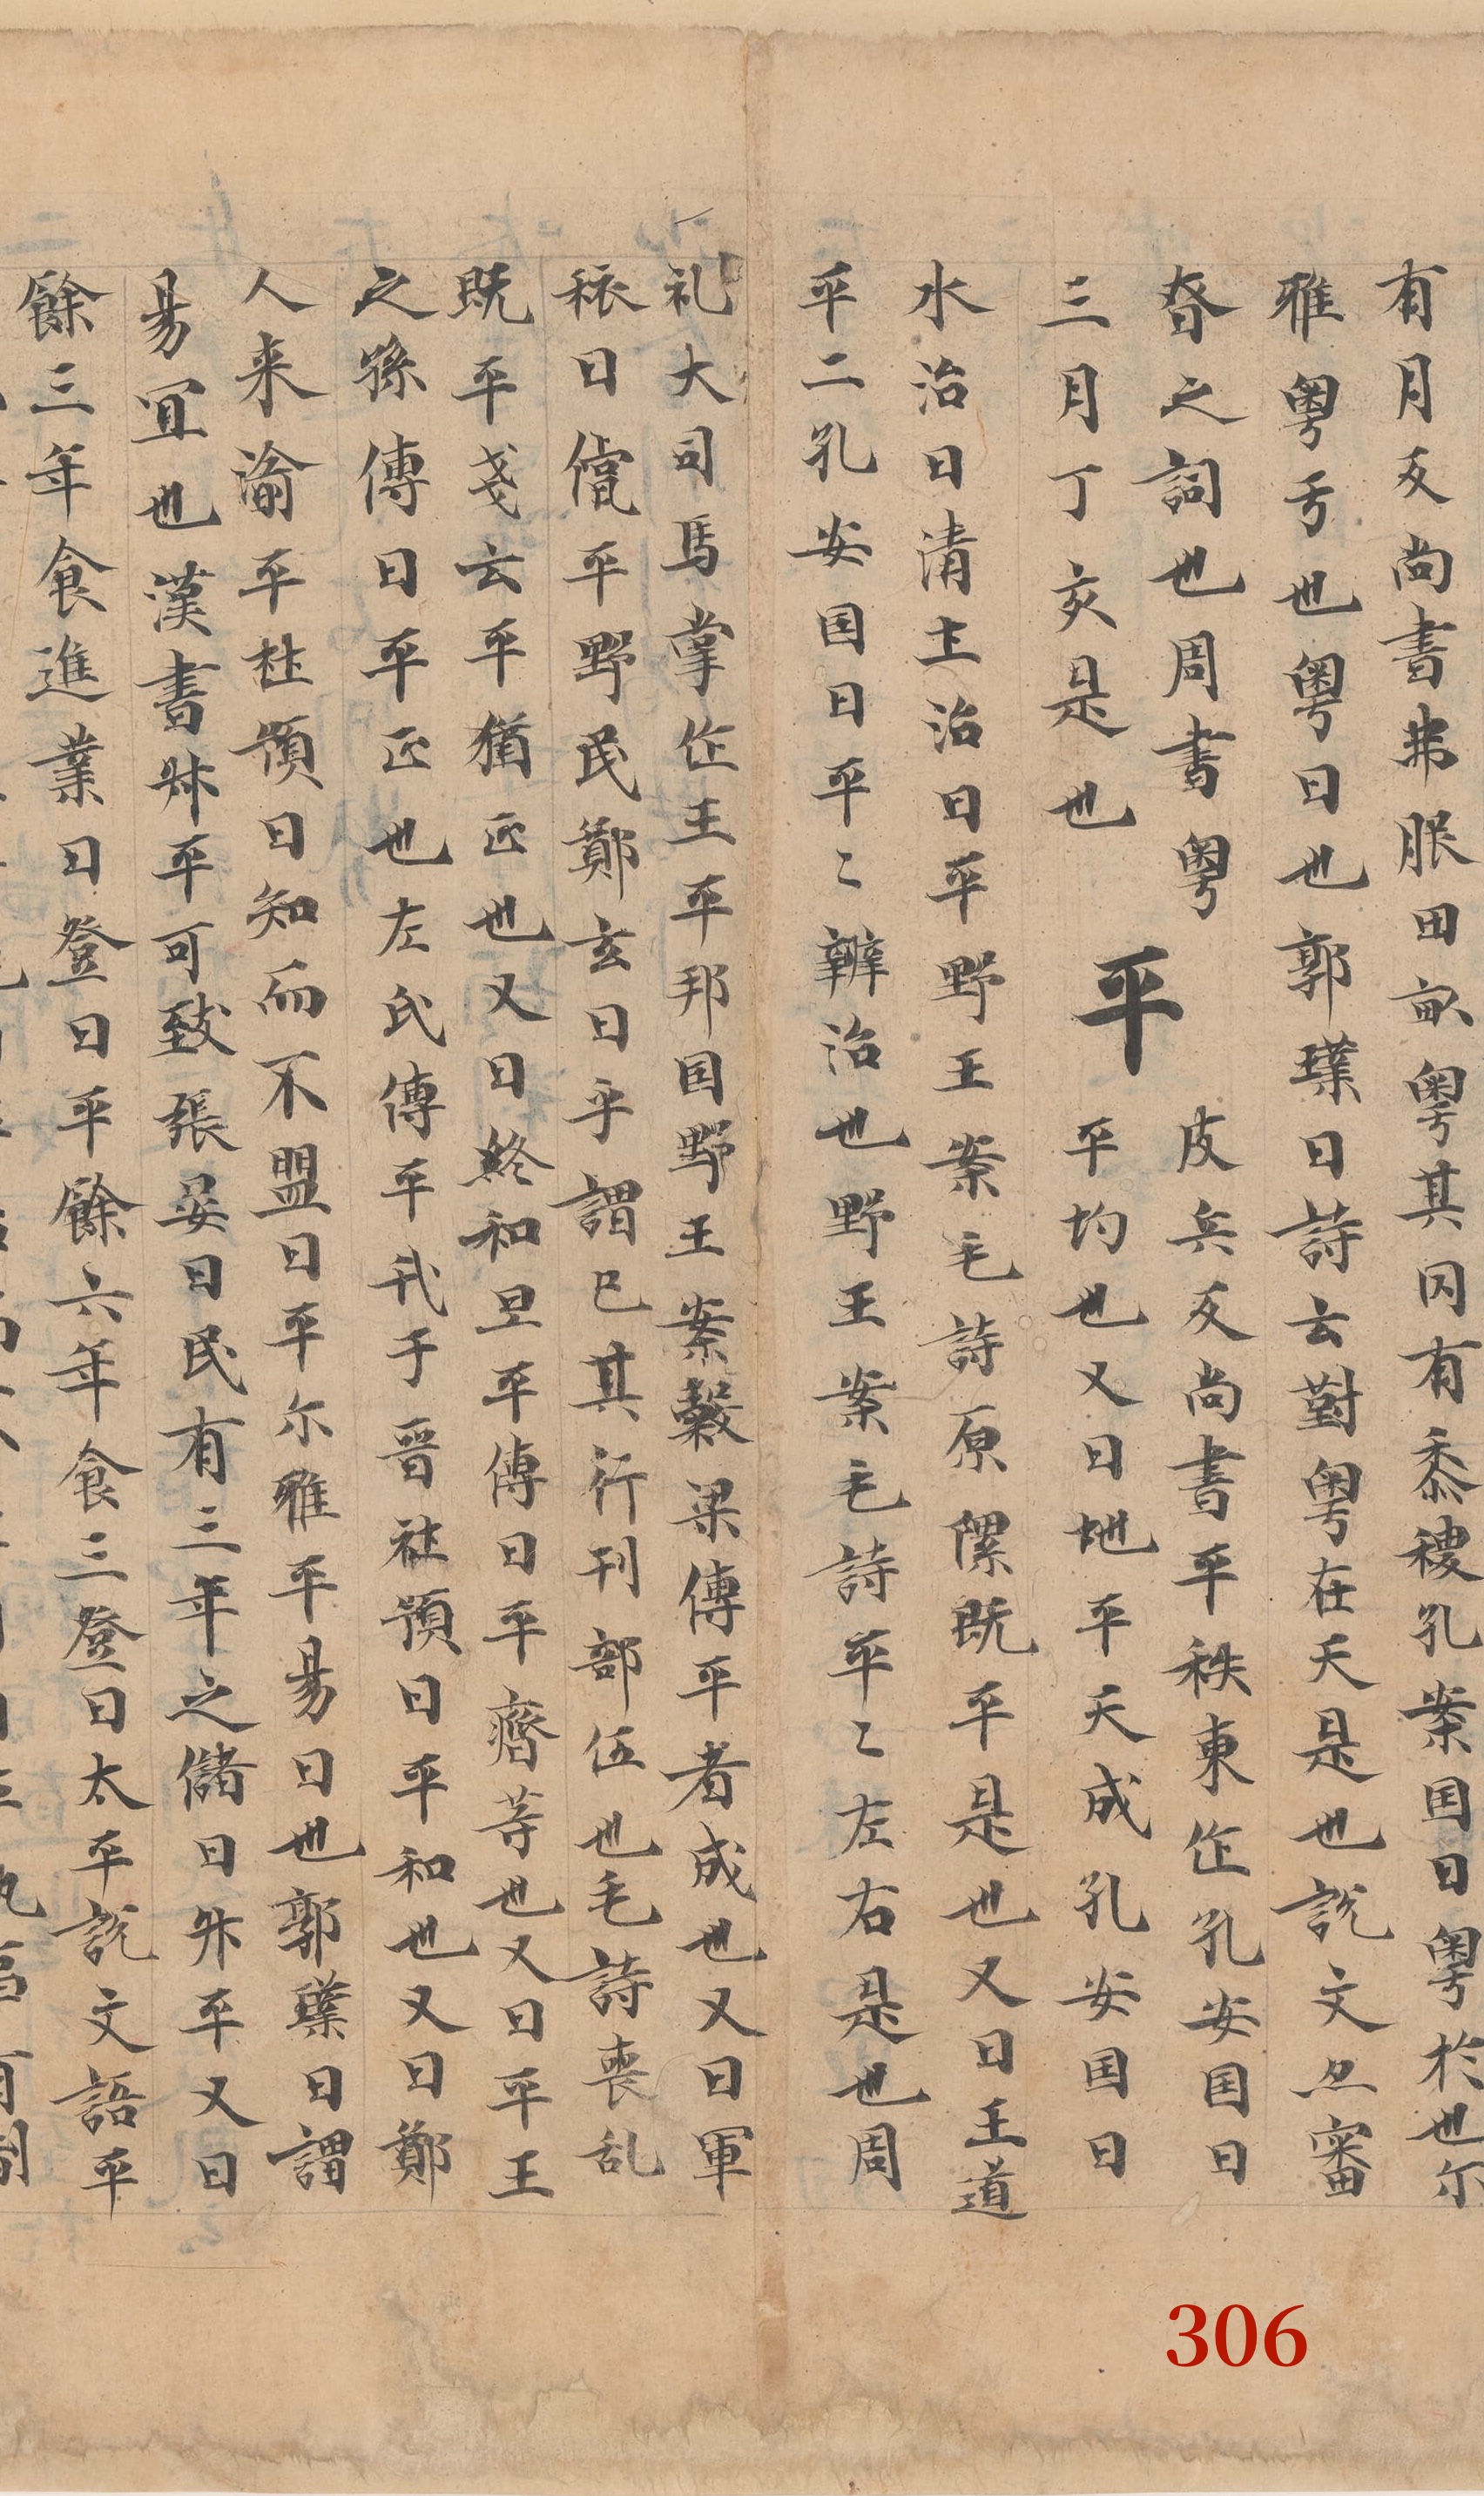 有月反尚書弗服田畝粵其罔有黍稷孔安国曰粵於也尔
雅粵亐也粵曰也郭璞曰詩云對粵在天是也說文亦審
昚之詞也周書粵
三月丁亥是也
平 皮兵反尚書平秩東作孔安国曰
平均也又曰地平天成孔安国曰
水治曰清土治曰平野王案毛詩原隰既平是也又曰王道
平二孔安国曰平〻辨治也野王案毛詩平〻左右是也周
礼大司馬掌作王平邦国野王案穀梁傳平者成也又曰軍
旅曰平野民鄭玄曰平謂已其行列部伍也毛詩喪乱
既平戔云平猶正也又曰終和且平傳曰平齊等也又曰平王
之孫傳曰平正也左氏傳平戎于晉杜預曰平和也又曰鄭
人来渝平杜預曰知而不盟曰平尔雅平易曰也郭璞曰謂
易宜也漢書升平可致張晏曰民有三年之儲曰升平又曰
餘三年食進業曰登曰平餘六年食三登曰太平說文語平
306